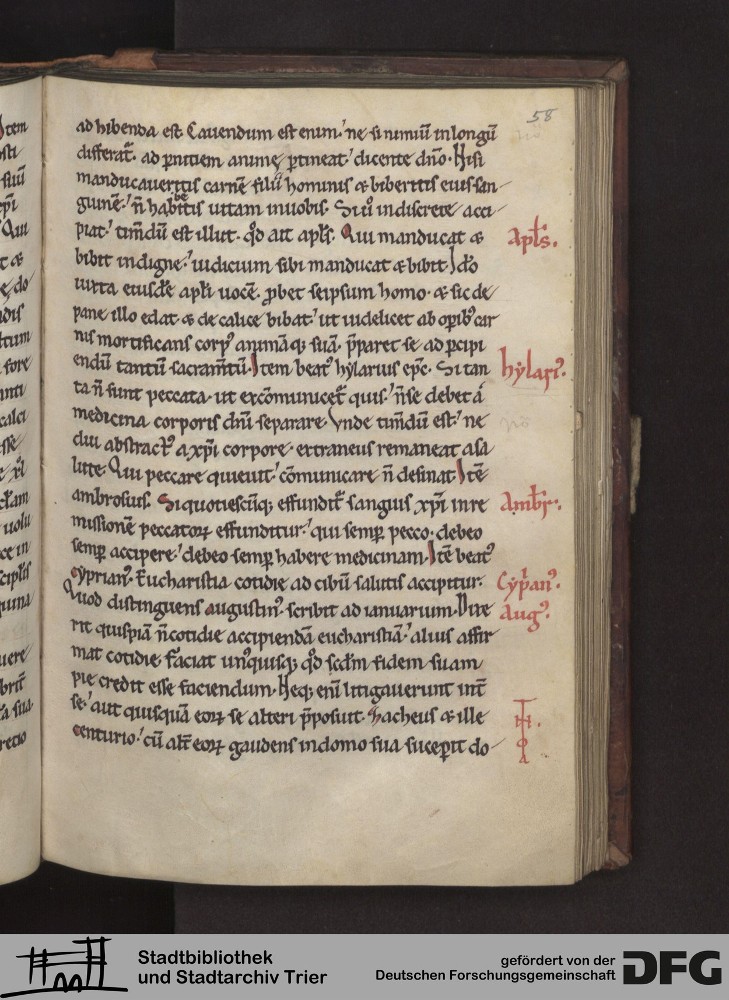 58
ad hibenda est. Cauendum est enim. ne si nimiū in longū
differat᷑. ad pnitiem anime ptineat. dicente dn̄o. Nisi
manducaueritis carnē filii hominis & biberitis eius san
guinē. n̄ habebitis uitam in uobis. Si ů indiscrete acci
piat. timdū est illut. qd̓ ait apl̄s. Qui manducat &
bibit indigne. iudicium sibi manducat & bibit. Id̓o
iuxta eiusdē apl̄i uocē. pbet seipsum homo. & sic de
pane illo edat & de calice bibat. ut uidelicet ab opib᷒ car
nis mortificans corp᷒ animāq; suā. p̄paret se ad pcipi
endū tantū sacram̄tū. Item beat᷒ hylarius epc̄. Si tan
ta n̄ sunt peccata. ut excōmunicet᷑ quis. n̄ se debet á
medicina corporis dn̄i separare. Vnde timdū est. ne
diu abstract᷒ a xp̄i corpore. extraneus remaneat a sa
lute. Qui peccare quieuit. cōmunicare n̄ desinat. Itē
ambrosius. Si quotiescūq; effundit᷑ sanguis xp̄i in re
missionē peccatoꝝ effunditur. qui semp̄ pecco. debeo
semp̄ accipere. debeo semp̄ habere medicinam. Itē beat᷒
cyprian᷒. Eucharistia cotidie ad cibū salutis accipitur.
Quod distinguens augustin᷒. scribit ad ianuarium. Dixe
rit quispiā n̄ cotidie accipiendā eucharistiā. alius affir
mat cotidie. Faciat un᷒quisq; qd̓ scdm̄ fidem suam
pie credit esse faciendum. Neq; eni litigauerunt int̄
se. aut quisquā eoꝝ se alteri p̄posuit. Zacheus & ille
centurio. cū alt̄ eoꝝ gaudens in domo sua sucepit do
apl̄s.
hylari᷒.
Ambr̄.
Cyp̄an᷒.
Aug᷒.
Stadtbibliothek
und Stadtarchiv Trier
gefördert von der
Deutschen Forschungsgemeinschaft
DFG